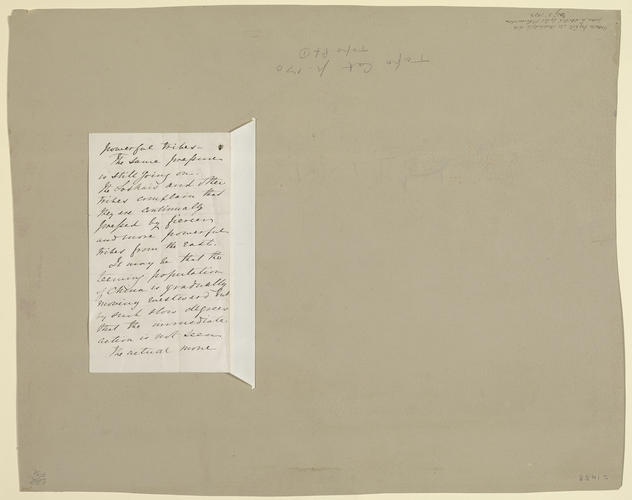 powerful tribes.
The same pressure
is still going on.
The Lushais and other
tribes complain that
they are continually
pressed by fiercer
and more powerful
tribes from the east.
It may be that the
teeming population
of China is gradually
moving westward but
by such slow degrees
that the immediate
action is not seen
The actual move
Topo Cat p. 170
Topo Pt ①